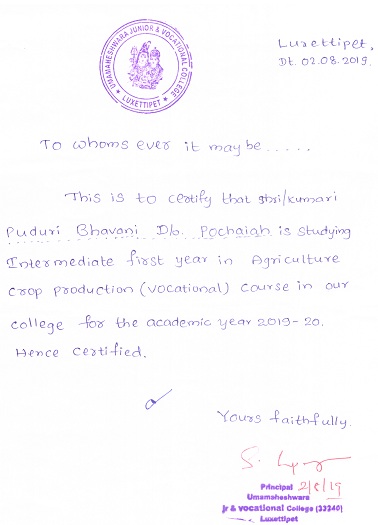 UMAMAHESHWARA JUNIOR & VOCATIONAL COLLEGE
★ LUXETTIPET ★
Luxettipet,
Dt. 02.08.2019.
To whoms ever it may be.....
This is to certify that shri/kumari
Puduri Bhavani D/o. Pochaiah is studying
Intermediate first year in Agriculture
crop production (vocational) course in our
college for the academic year 2019-20.
Hence certified.
Yours faithfully.
2/8/19
Principal
Umamaheshwara
jr & vocational College (33240)
Luxettipet